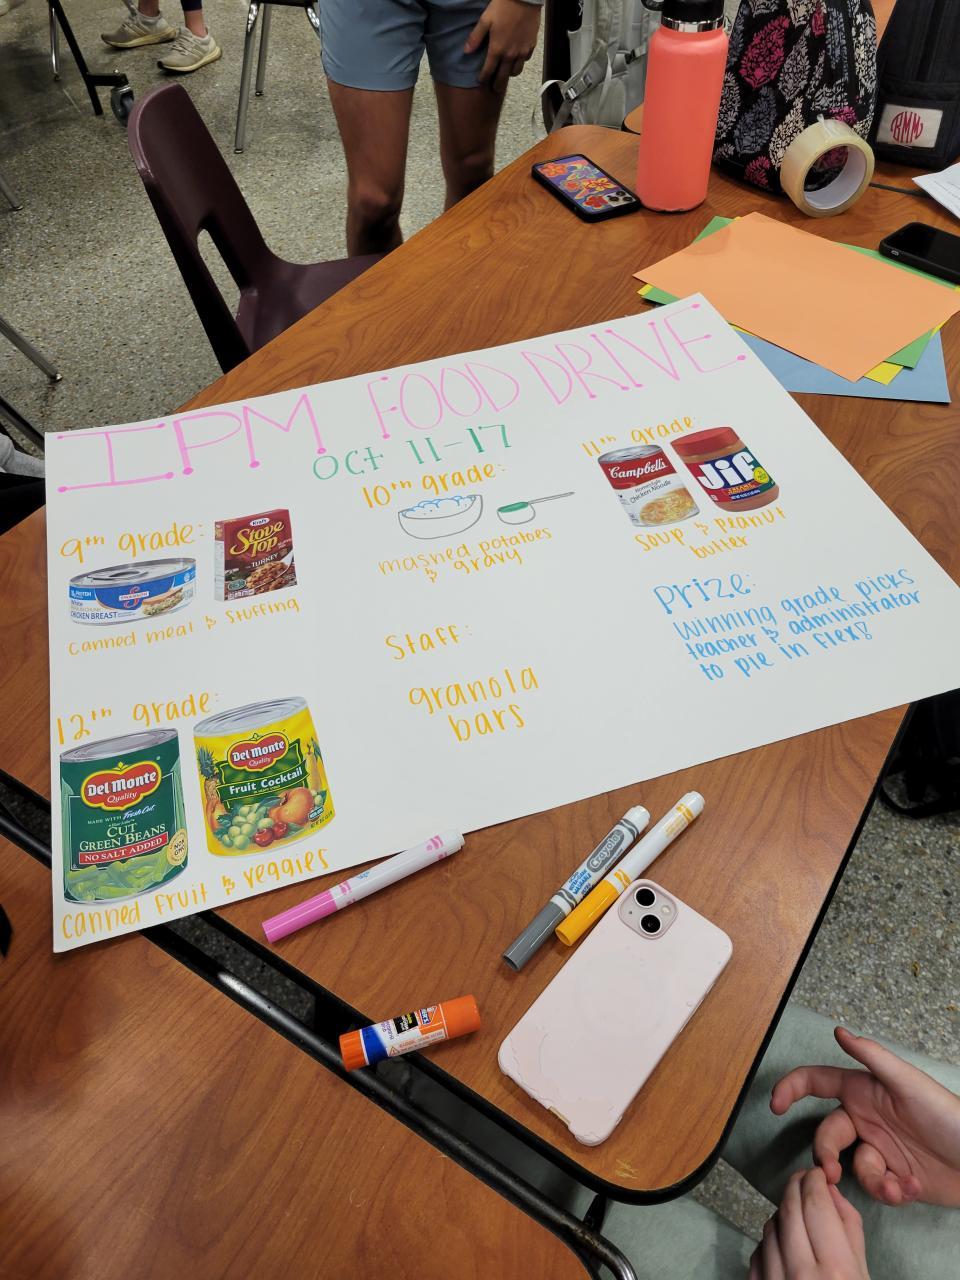 IPM FOOD DRIVE
Oct 11-17
9th grade:
Kraft
Stove
Top
TURKEY
White
CHICKEN BREAST
canned meat & stuffing
10th grade:
mashed potatoes
& gravy
11th grade:
Campbell's
Homestyle
Chicken Noodle
Jif
CREAMY
soup & peanut
butter
12th grade:
Del Monte
Quality
MADE WITH Fresh Cut
CUT
GREEN BEANS
NO SALT ADDED
NON
GMO
Del Monte
Quality
Fruit Cocktail
canned fruit & veggies
Staff:
granola
bars
Prize:
Winning grade picks
teacher & administrator
to pie in flex!
Crayola
BMM